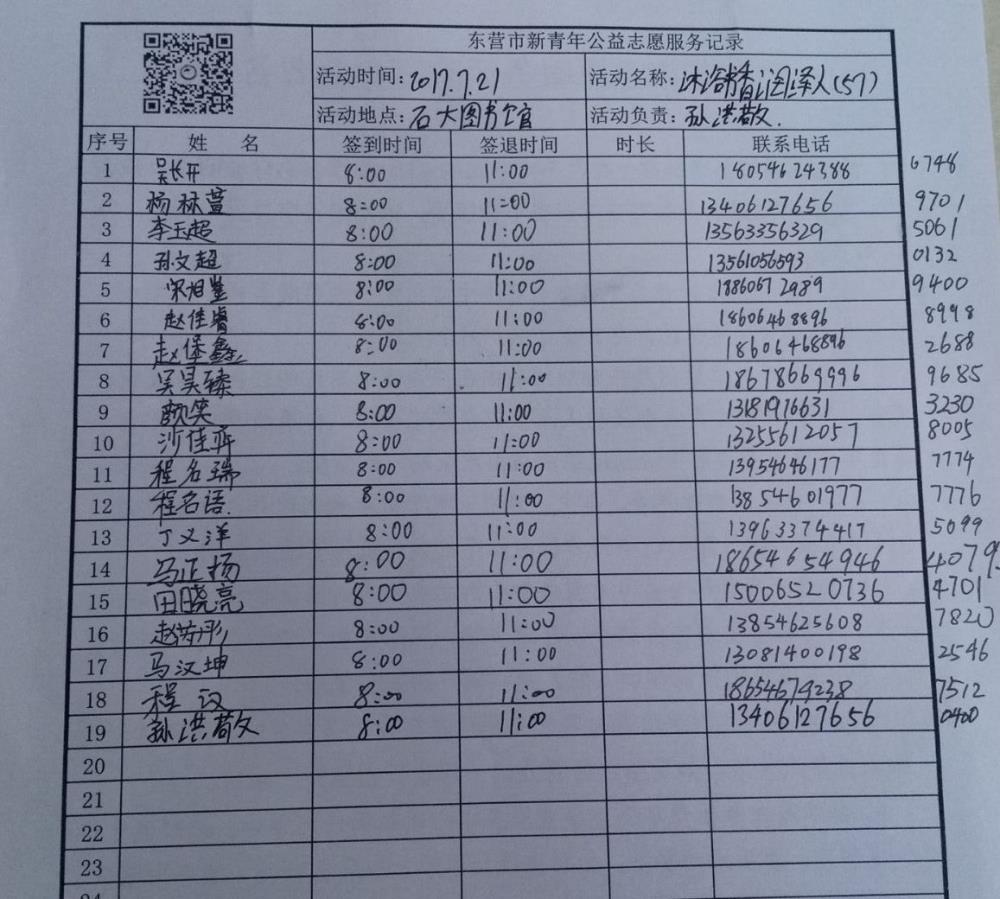 东营市新青年公益志愿服务记录
活动时间：2017.7.21 活动名称：沐浴书香润泽人(57)
活动地点：石大图书馆 活动负责：孙洪敬.
序号 姓名 签到时间 签退时间 时长 联系电话
1 吴长开 8:00 11:00 18054624388 6748
2 杨林萱 8:00 11:00 13406127656 9701
3 李玉超 8:00 11:00 13563356329 5061
4 孙文超 8:00 11:00 13561056593 0132
5 宋旭 8:00 11:00 18860672989 9400
6 赵佳睿 8:00 11:00 18606468896 8998
7 赵堡鑫 8:00 11:00 18606468896 2688
8 吴昊臻 8:00 11:00 18678669996 9685
9 颜笑 8:00 11:00 13181976631 3230
10 沙佳弈 8:00 11:00 13255612057 8005
11 程名瑞 8:00 11:00 13954646177 7774
12 程名语. 8:00 11:00 13854601977 7776
13 丁义洋 8:00 11:00 13963374417 5099
14 马正扬 8:00 11:00 18654654946 4079
15 田晓亮 8:00 11:00 15006520736 4701
16 赵芮彤 8:00 11:00 13854625608 7820
17 马汉坤 8:00 11:00 13081400198 2546
18 程 8:00 11:00 18654679238 7512
19 孙洪敬 8:00 11:00 13406127656 0400
20
21
22
23